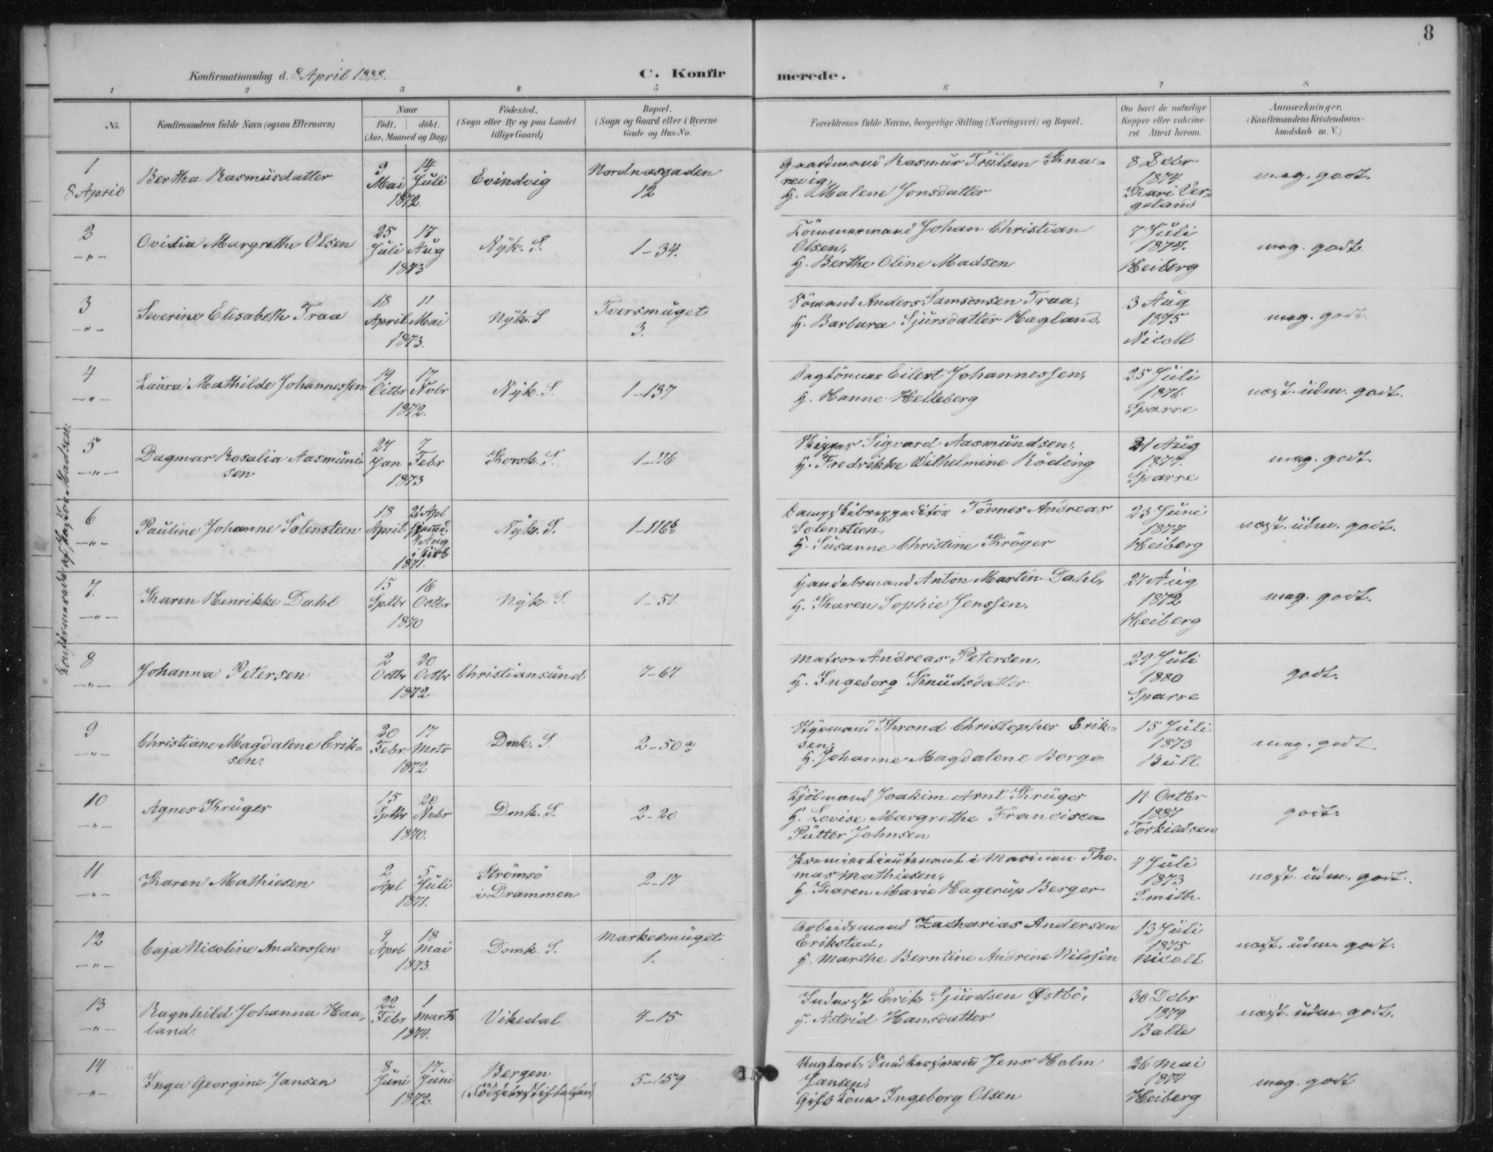 8
Konfirmationsdag d. 8 April 1888.
C. Konfirmerede.
1 2 3 4 5 6 7 8
No.
Konfirmandens fulde Navn (ogsaa Efternavn)
Naar
født. døbt.
(Aar, Maaned og Dag)
Fødested.
(Sogn eller By og paa Landet
tillige Gaard)
Bopæl.
(Sogn og Gaard eller i Byerne
Gade og Hus-No.
Forældrenes fulde Navne, borgerlige Stilling (Næringsvei) og Bopæl.
Om havt de naturlige
Kopper eller vakcineret.
Attest herom.
Anmærkninger.
(Konfirmandens Kristendomskundskab
m. V.)
1
8 April
Bertha Rasmusdatter
9 Mai 14 Juli
1872.
Evindvig
Nordnæsgaden
12
Gaardmand Rasmus Trulsen
H. Malene Jonsdatter
8 Debr
1874
meg. godt.
2
— " —
Ovidia Margrethe Olsen
25 Juli 17 Aug
1873
Nyk. S.
1–34.
Tömmermand Johan Christian
Olsen,
H. Berthe Oline Madsen
7 Juli
1874.
Heiberg
meg. godt
3
— " —
Severine Elisabeth Traa
18 April 11 Mai
1873.
Nyk. S
Tversmuget
3.
Sömand Anders Samsonsen Traa,
H. Barbara Sjursdatter Hagland,
3 Aug
1875
Nicoll
meg. godt.
4
— " —
Laura Mathilde Johannessen
19 Octbr 17 Novbr
1872.
Nyk. S.
1–137
Daglönner Eilert Johannessen,
H. Hanne Helleberg
25 Juli
Sparre
næst. udm. godt.
5
— " —
Dagmar Rosalia Aasmundsen
27 Jan 7 Febr
1873
Korsk. S.
Sigvard Aasmundsen,
H. Fredrikke Wilhelmine Röding
21 Aug
1877.
Sparre
meg. godt.
6
— " —
Pauline Johanne Solensteen
18 April
1871
Nyk. S.
1–116b
Tönnes Andreas
Solensteen,
H. Susanne Christine Kröger
23 Juni
1874
Heiberg
næst. udm. godt.
7
— " —
Karen Henrikke Dahl
15 Sptbr 16 Octbr
1870
Nyk. S.
1–51
Handelsmand Anton Martin Dahl,
H. Karen Sophie Jenssen.
27 Aug
1872
Heiberg
meg. godt.
8
— " —
Johanna Petersen
2 Octbr 20 Octbr
1872
Christiansund
4–67
Matros Andreas Petersen,
H. Ingeborg Knudsdatter
29 Juli
1880
Sparre
godt.
9
— " —
Christiane Magdalene Eriksen.
20 Febr 17 Mrts
1872
Domk. S.
2–50a
Styrmand Thrond Christopher Eriksen,
H. Johanne Magdalene Berge
15 Juli
1873
Bull
meg. godt
10
— " —
Agnes Krüger
15 Sptbr 20 Novbr
1870.
Domk. S.
2–20
Kjöbmand Joakim Arnt Krüger
H. Lovise Margrethe Francisca
Pütter Johnsen
11 Octbr
1887
Torkildsen
godt.
11
— " —
Karen Mathiesen
2 Apl 5 Juli
1871.
Strömsö
i Drammen
2–17
Premierlieutenant i Marinen Thomas
Mathiesen,
H. Karen Marie Hagerup Berger
7 Juli
1873
Smith
næst. udm. godt.
12
— " —
Caja Nicoline Anderssen
9 April 18 Mai
1873.
Domk. S.
Markesmuget
1.
Arbeidsmand Zacharias Andersen
Erikstad,
H. Marthe Berntine Andrine Nilssen
13 Juli
1875
Nicoll
næst. udm. godt.
13
— " —
Ragnhild Johanna Haaland.
22 Febr 1 Marts
1874.
Vikedal
4–15
Inderst Erik Sjurdsen Østbö,
H. Astrid Hansdatter
30 Debr
1879
Balle
næst. udm. godt.
14
— " —
Inga Georgine Jansen
8 Juni 17 Juni
1872.
Bergen
(Födselsstiftelsen)
5–159
Jens Holm
Jansen,
Ingeborg Olsen
26 Mai
1874
Heiberg
meg. godt